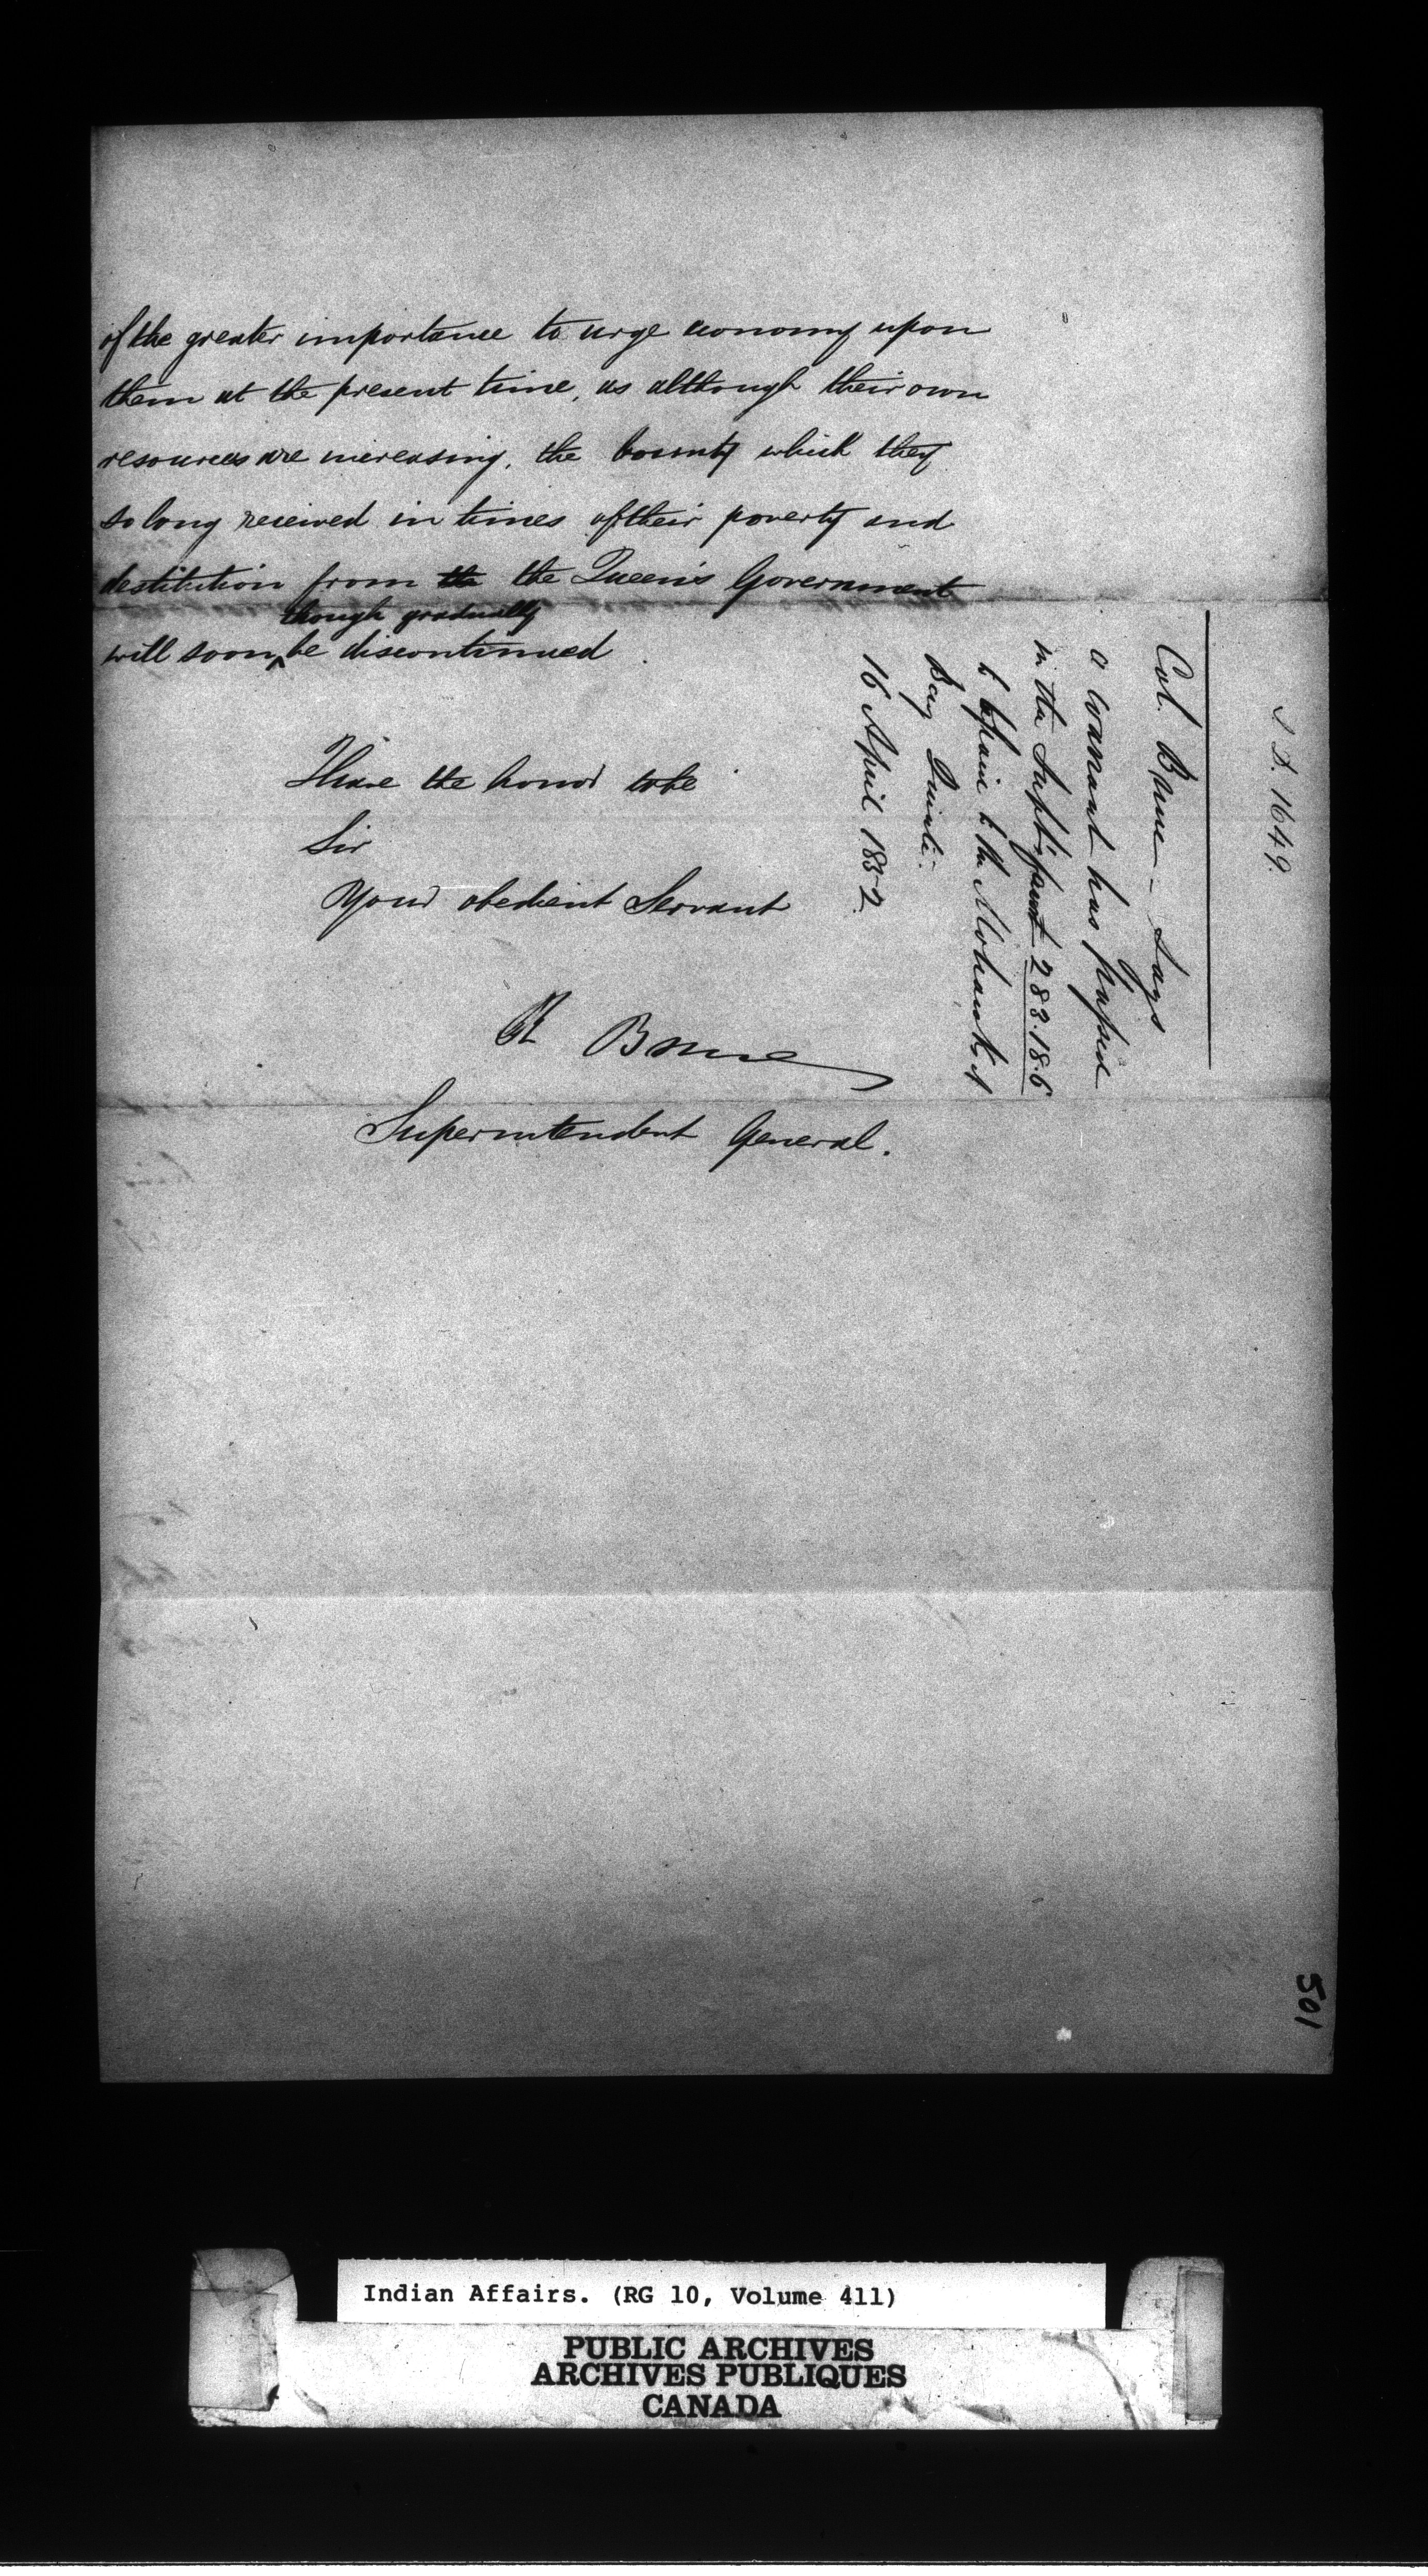 of the greater importance to urge economy upon
them at the present time, as although their own
resources are increasing, the bounty which they
so long received in times of their poverty and
destitution from the the Queen's Government
though gradually
will soon be discontinued
I have the honor to be
Sir
Your obedient Servant
R Bruce
Superintendent General.
1649.
Col. Bruce - Says
a warrant has passed
in the Supt's favor 283.18.6
to to the Mohawks
Bay Quinté.
16 April 1852.
501
Indian Affairs. (RG 10, Volume 411)
PUBLIC ARCHIVES
ARCHIVES PUBLIQUES
CANADA